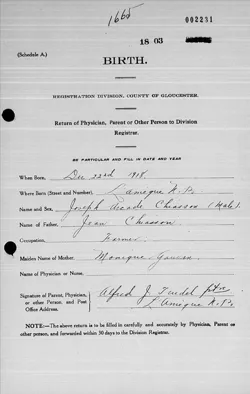 1665
002231
18 03
(Schedule A.)
BIRTH.
REGISTRATION DIVISION, COUNTY OF GLOUCESTER.
Return of Physician, Parent or Other Person to Division
Registrar.
BE PARTICULAR AND FILL IN DATE AND YEAR
When Born, Dec 22nd 1918.
Where Born (Street and Number), Lameque N.B.
Name and Sex, Joseph Chiasson (Male).
Name of Father, Jean Chiasson
Occupation, Farmer
Maiden Name of Mother, Monique
Name of Physician or Nurse,
Signature of Parent, Physician,
or other Person, and Post
Office Address.
Alfred J.
Lameque N.B.
NOTE:—The above return is to be filled in carefully and accurately by Physician, Parent
or other person, and forwarded within 30 days to the Division Registrar.